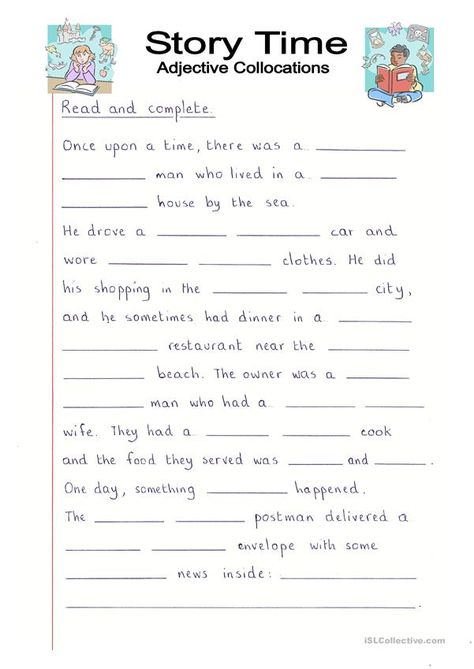 Story Time
Adjective Collocations
Read and complete.
Once upon a time, there was a ________
________ man who lived in a ________
________ house by the sea.
He drove a ________ ________ car and
wore ________ ________ clothes. He did
his shopping in the ________ ________ city,
and he sometimes had dinner in a ________
________ restaurant near the ________
________ beach. The owner was a ________
________ man who had a ________ ________
wife. They had a ________ ________ cook
and the food they served was ________ and ________.
One day, something ________ happened.
The ________ ________ postman delivered a
________ ________ envelope with some
________ news inside: ________
________.
iSLCollective.com